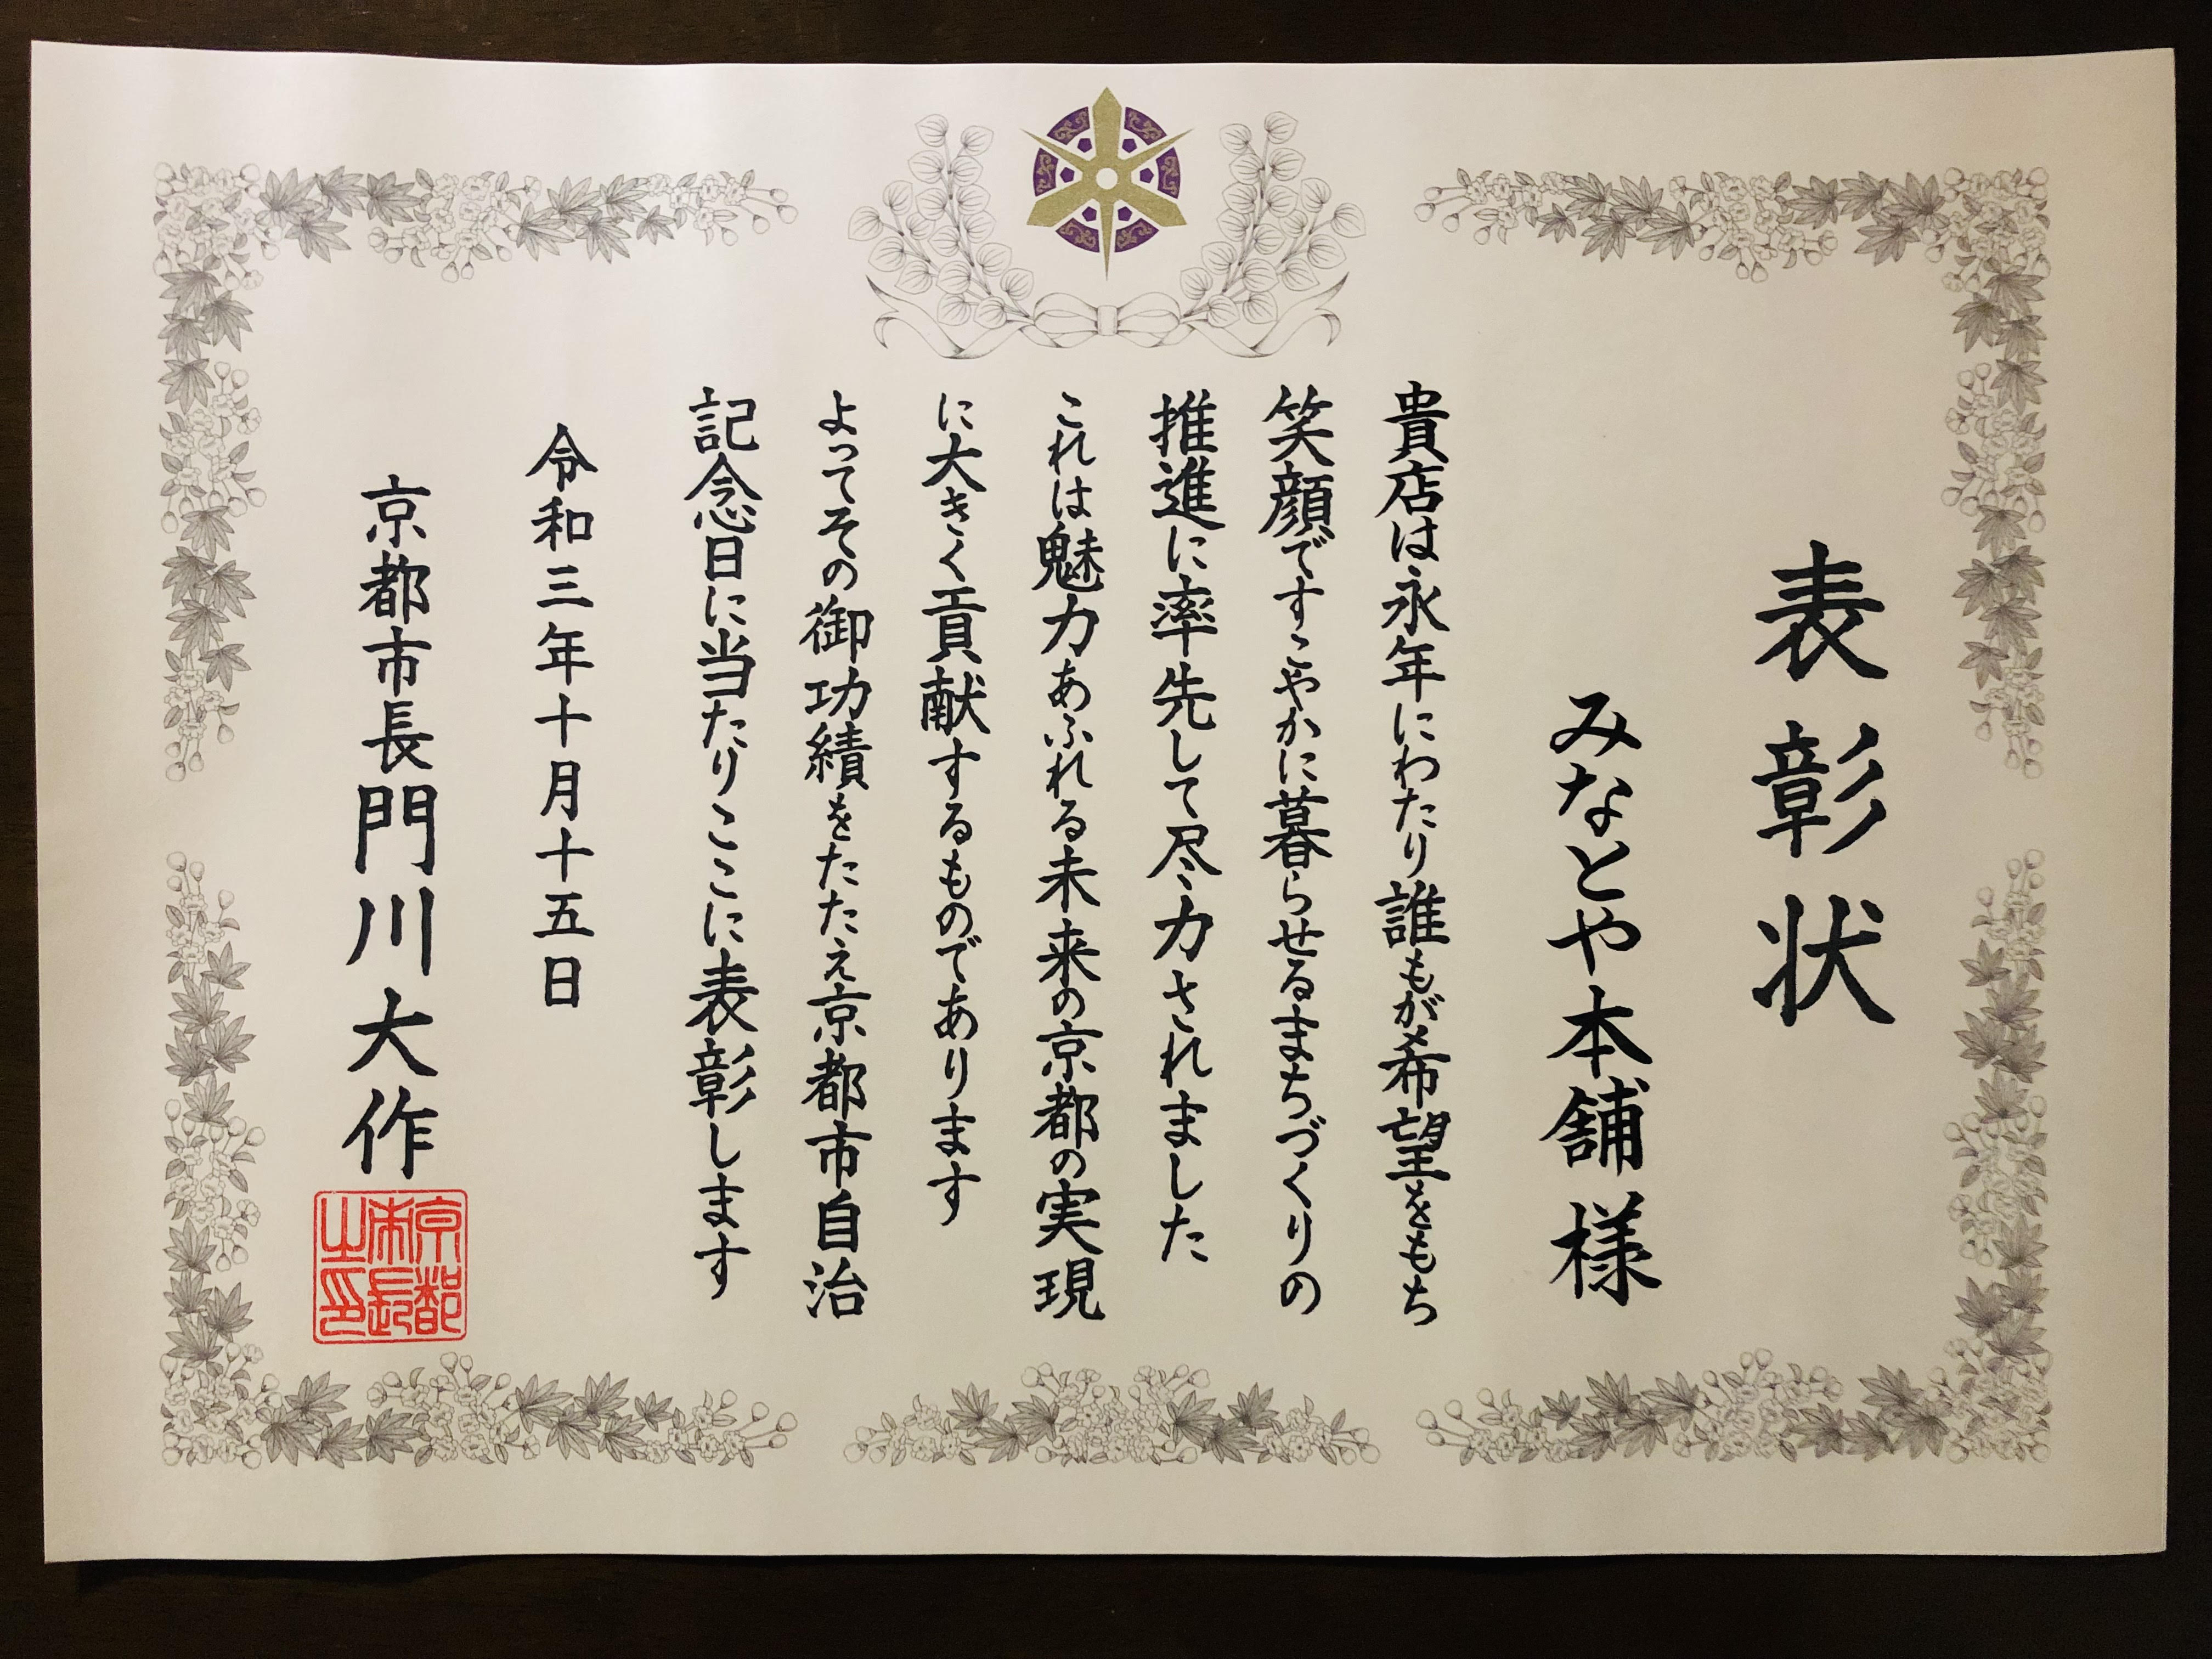 表彰状
みなとや本舗様
貴店は永年にわたり誰もが希望をもち
笑顔ですこやかに暮らせるまちづくりの
推進に率先して尽力されました
これは魅力あふれる未来の京都の実現
に大きく貢献するものであります
よってその御功績をたたえ京都市自治
記念日に当たりここに表彰します
令和三年十月十五日
京都市長門川大作
京都
市長
之印